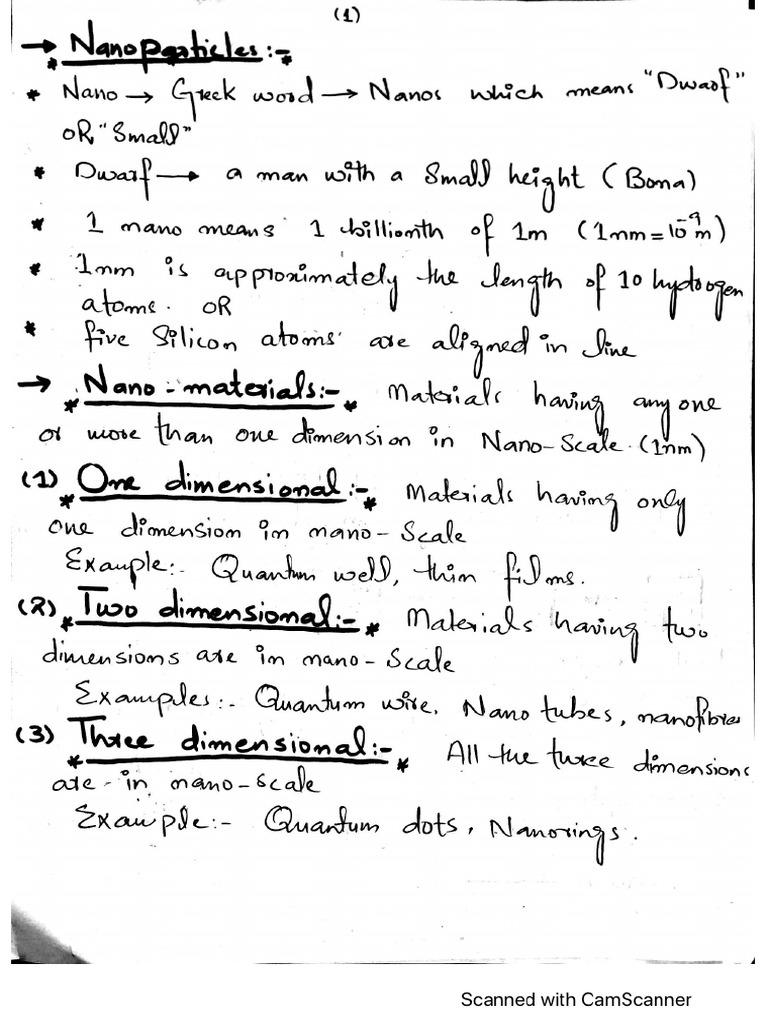 (1)
→ Nanoparticles:-
* Nano → Greek word → Nanos which means "Dwarf"
OR "Small"
* Dwarf → a man with a small height (Bona)
* 1 nano means 1 billionth of 1m (1nm = 10⁻⁹m)
* 1nm is approximately the length of 10 hydrogen
atoms. OR
* five Silicon atoms are aligned in line
→ Nano-materials:- Materials having any one
or more than one dimension in Nano-Scale. (1nm)
(1) One dimensional:- Materials having only
one dimension in nano-Scale
Example:- Quantum well, thin films.
(2) Two dimensional:- Materials having two
dimensions are in nano-Scale
Examples:- Quantum wire, Nano tubes, nanofibres
(3) Three dimensional:- All the three dimensions
are in nano-scale
Example:- Quantum dots, Nanorings.
Scanned with CamScanner